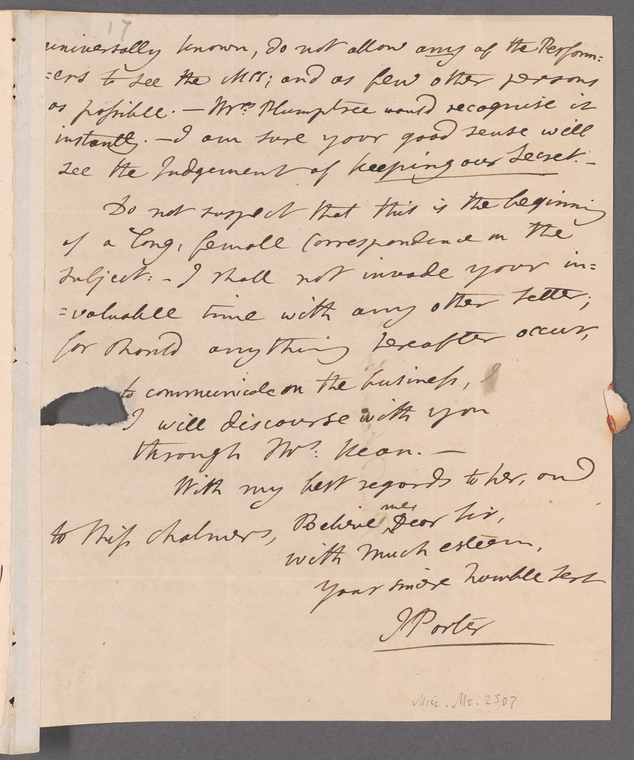 17
universally known, do not allow any of the Perform=
=ers to see the Mss; and as few other persons
as possible. — Mrs. Plumptree would recognise it
instantly. — I am sure your good sense will
see the Judgement of keeping our Secret. —
Do not suspect that this is the beginning
of a long, female Correspondence on the
subject: - I shall not invade your in=
=valuable time with any other letter;
for should anything hereafter occur,
to communicate on the business,
I will discourse with you
through Mrs. Kean. —
With my best regards to her, and
to Miss Chalmers, Believe me, Dear Sir,
with much esteem,
your sincere humble Sert
J Porter
Misc. Ms. 2507